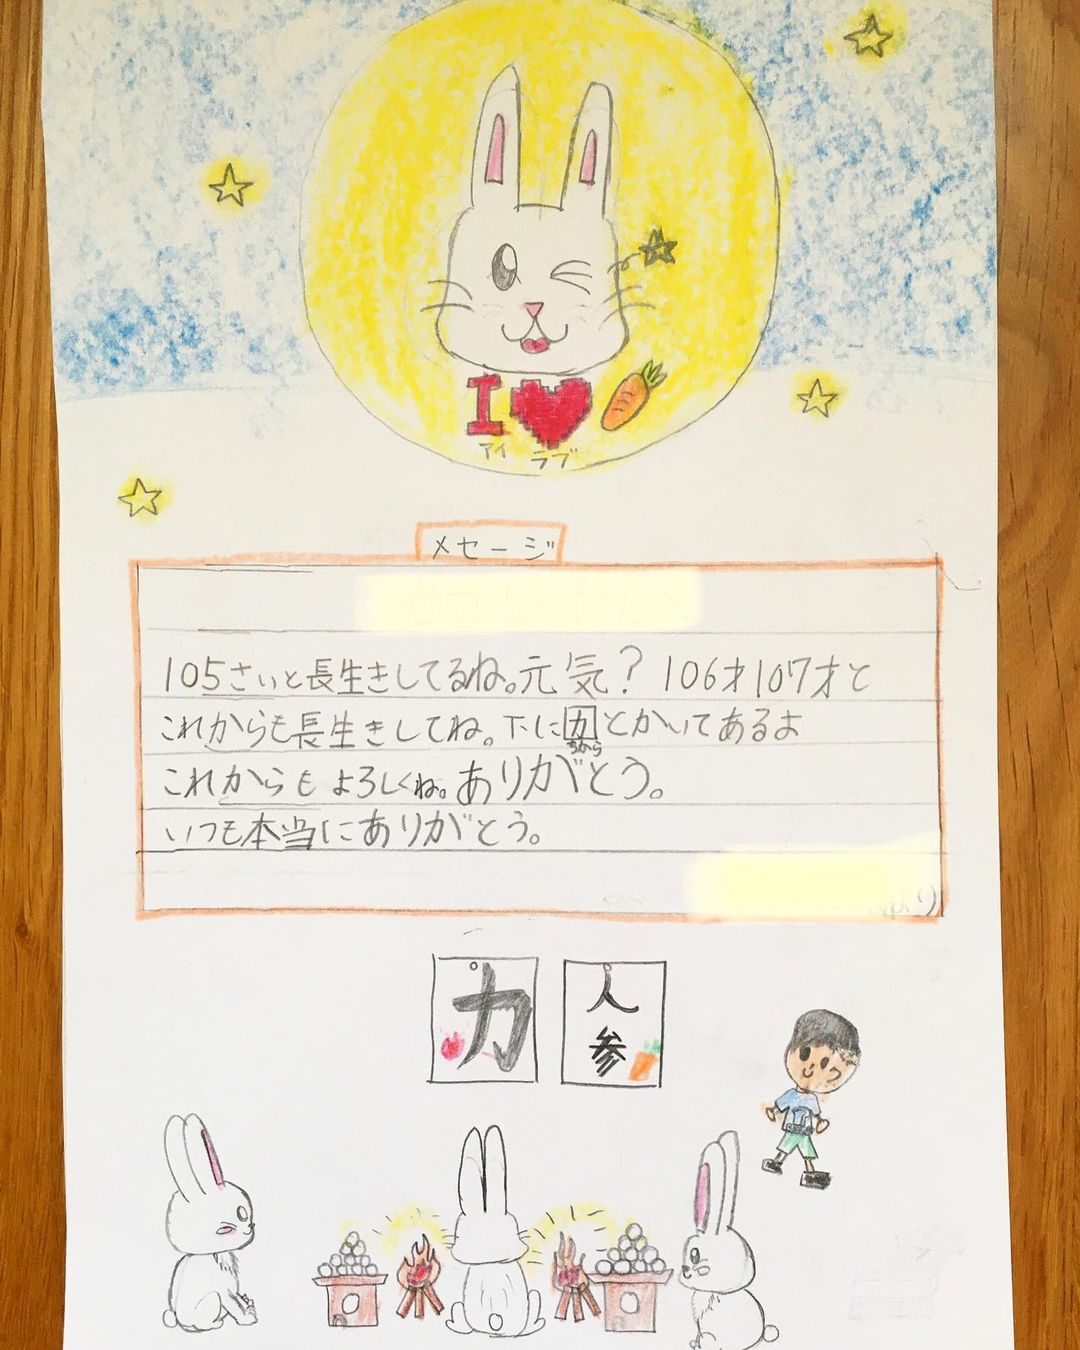 I
アイ ラブ
メセージ
105さいと長生きしてるね。元気？106才107才と
これからも長生きしてね。下に力とかいてあるよ
ちから
これからもよろしくね。ありがとう。
いつも本当にありがとう。
より
力
人
参